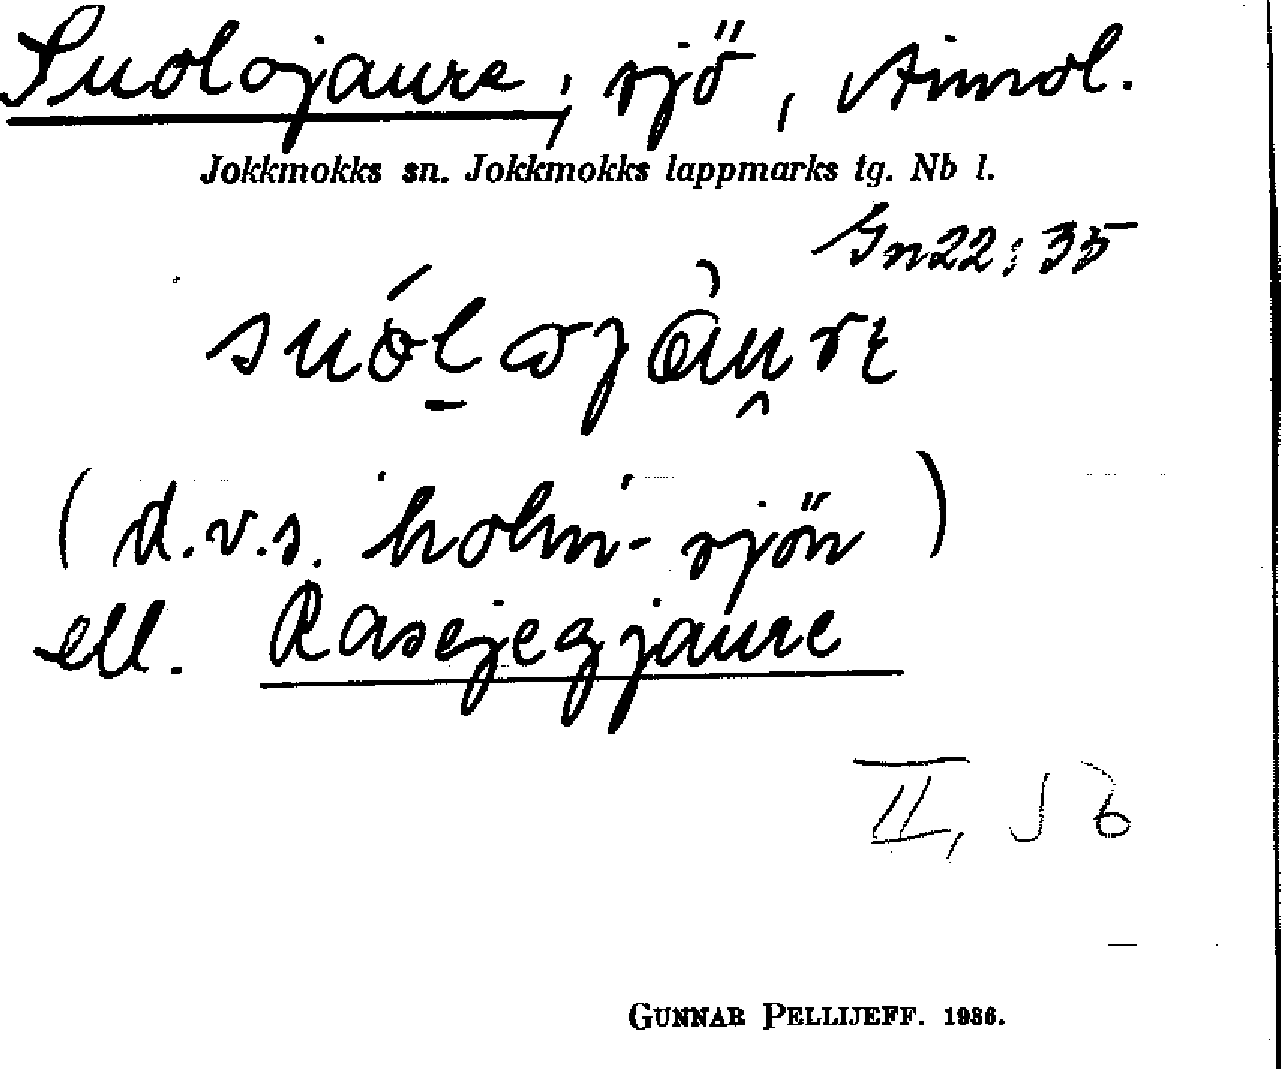 Suolojaure; sjö,
Jokkmokks sn. Jokkmokks lappmarks tg. Nb l.
Gn22:35
(d.v.s. holm-sjön)
ell. Rasejegjaure
II, 56
GUNNAR PELLIJEFF. 1936.